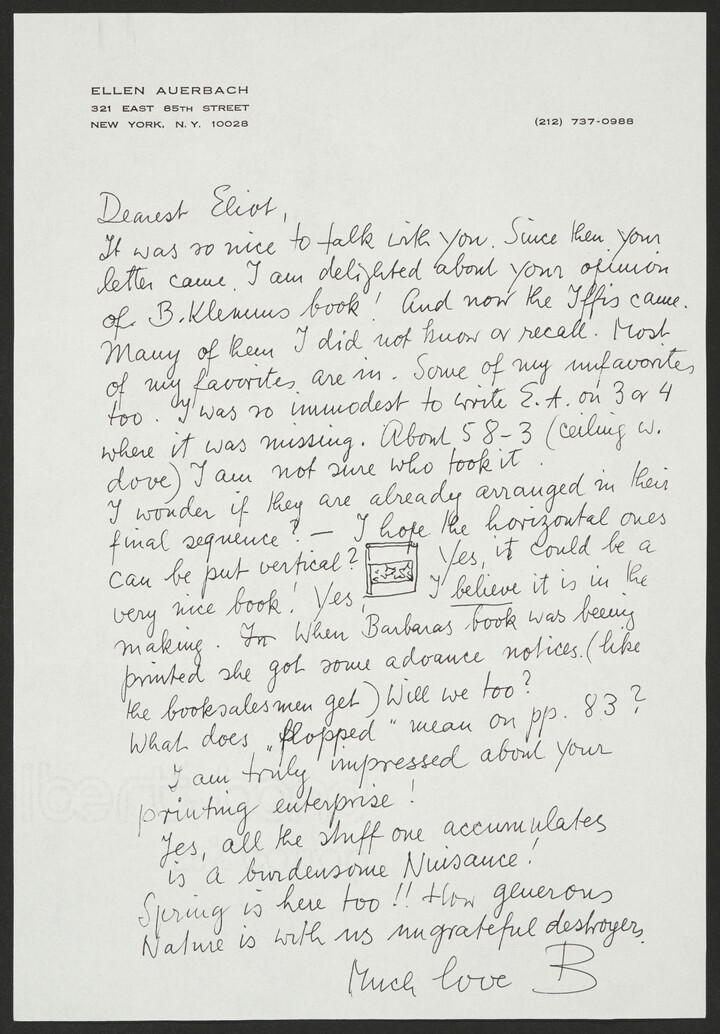 ELLEN AUERBACH
321 EAST 85TH STREET
NEW YORK, N.Y. 10028
(212) 737-0988
Dearest Eliot,
It was so nice to talk with you. Since then your
letter came. I am delighted about your opinion
of B. Klemms book! And now the Iffis came.
Many of them I did not know or recall. Most
of my favorites are in. Some of my unfavorites
too. I was so immodest to write E.A. on 3 or 4
where it was missing. About 58-3 (ceiling w.
dove) I am not sure who took it.
I wonder if they are already arranged in their
final sequence? — I hope the horizontal ones
can be put vertical? Yes, it could be a
very nice book! Yes! I believe it is in the
making. In When Barbaras book was beeing
printed she got some advance notices. (like
the booksalesmen get) Will we too?
What does „flopped" mean on pp. 83?
I am truly impressed about your
printing enterprise!
Yes, all the stuff one accumulates
is a burdensome Nuisance!
Spring is here too!! How generous
Nature is with us ungrateful destroyers.
Much love B